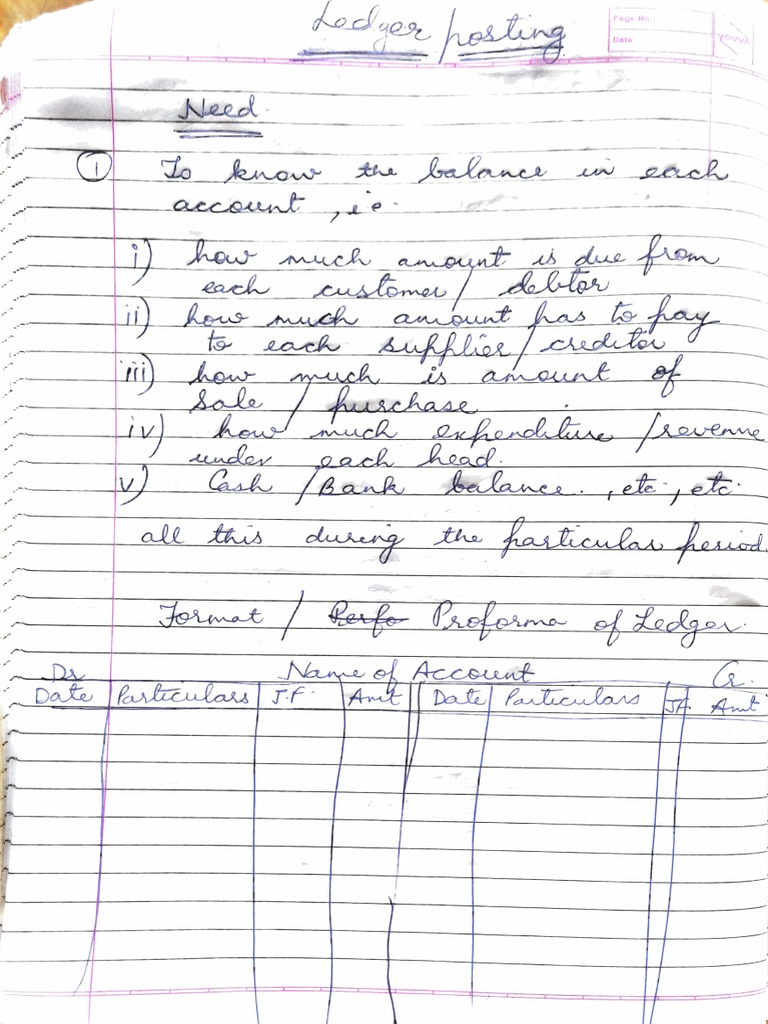 Ledger posting
Page No.:
Date
YOUVA
Need.
① To know the balance in each
account, i.e.
i) how much amount is due from
each customer / debtor
ii) how much amount has to pay
to each supplier / creditor
iii) how much is amount of
Sale / purchase
iv) how much expenditure / revenue
under each head.
v) Cash / Bank balance., etc., etc.
all this during the particular period.
Format / Perfo Proforma of Ledger.
Dr Name of Account Cr.
Date Particulars J.F. Amt Date Particulars J.F. Amt